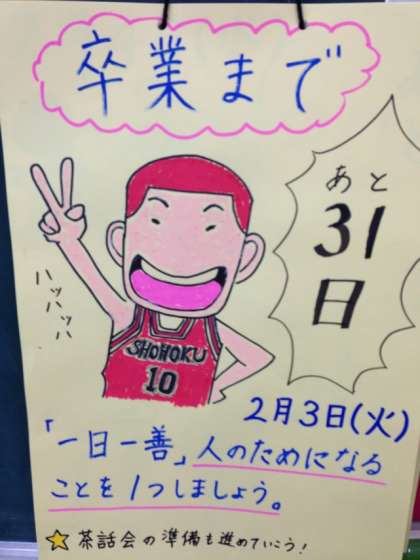 卒業まで
あと
31
日
ハッハッハ
SHOHOKU
10
2月3日(火)
「一日一善」人のためになる
ことを1つしましょう。
☆茶話会の準備も進めていこう!